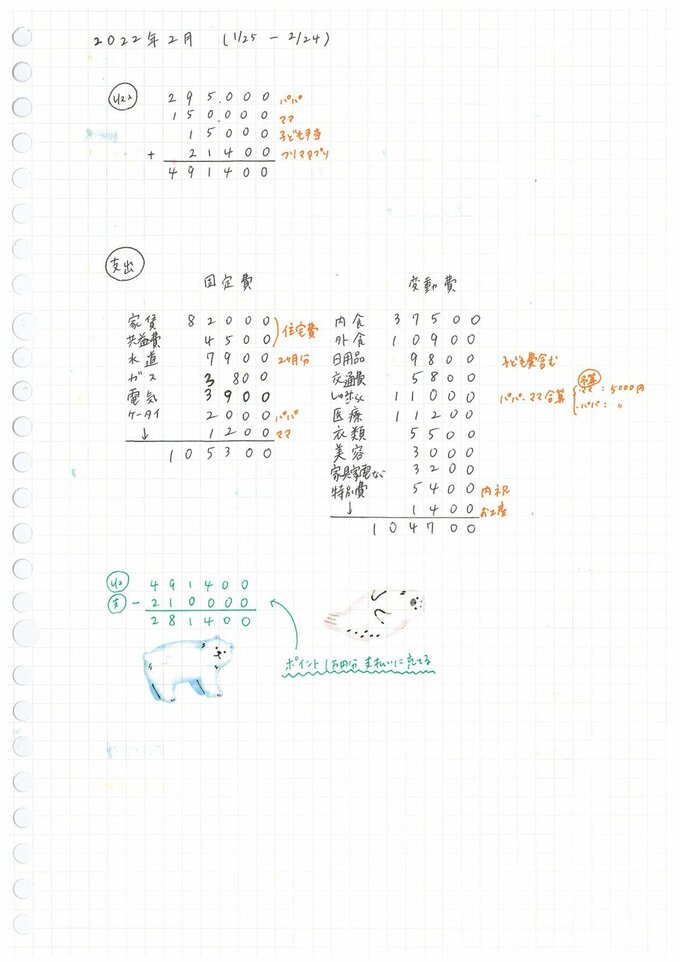 2022年2月 (1/25 - 2/24)
収入
295.000 パパ
150.000 ママ
15000 子ども手当
+ 21400 フリマアプリ
491400
支出
固定費
家賃 82000
共益費 4500
住宅費
水道 7900 2ヶ月分
ガス 3800
電気 3900
ケータイ 2000 パパ
↓ 1200 ママ
105300
変動費
内食 37500
外食 10900
日用品 9800 子ども費含む
交通費 5800
11000 パパ、ママ合算
予算
ママ:5000円
パパ: 〃
医療 11200
衣類 5500
美容 3000
家具家電など 3200
特別費 5400 内祝
↓ 1400 お土産
104700
収 491400
支 - 210000
281400
ポイント1万円分 支払いに充てる